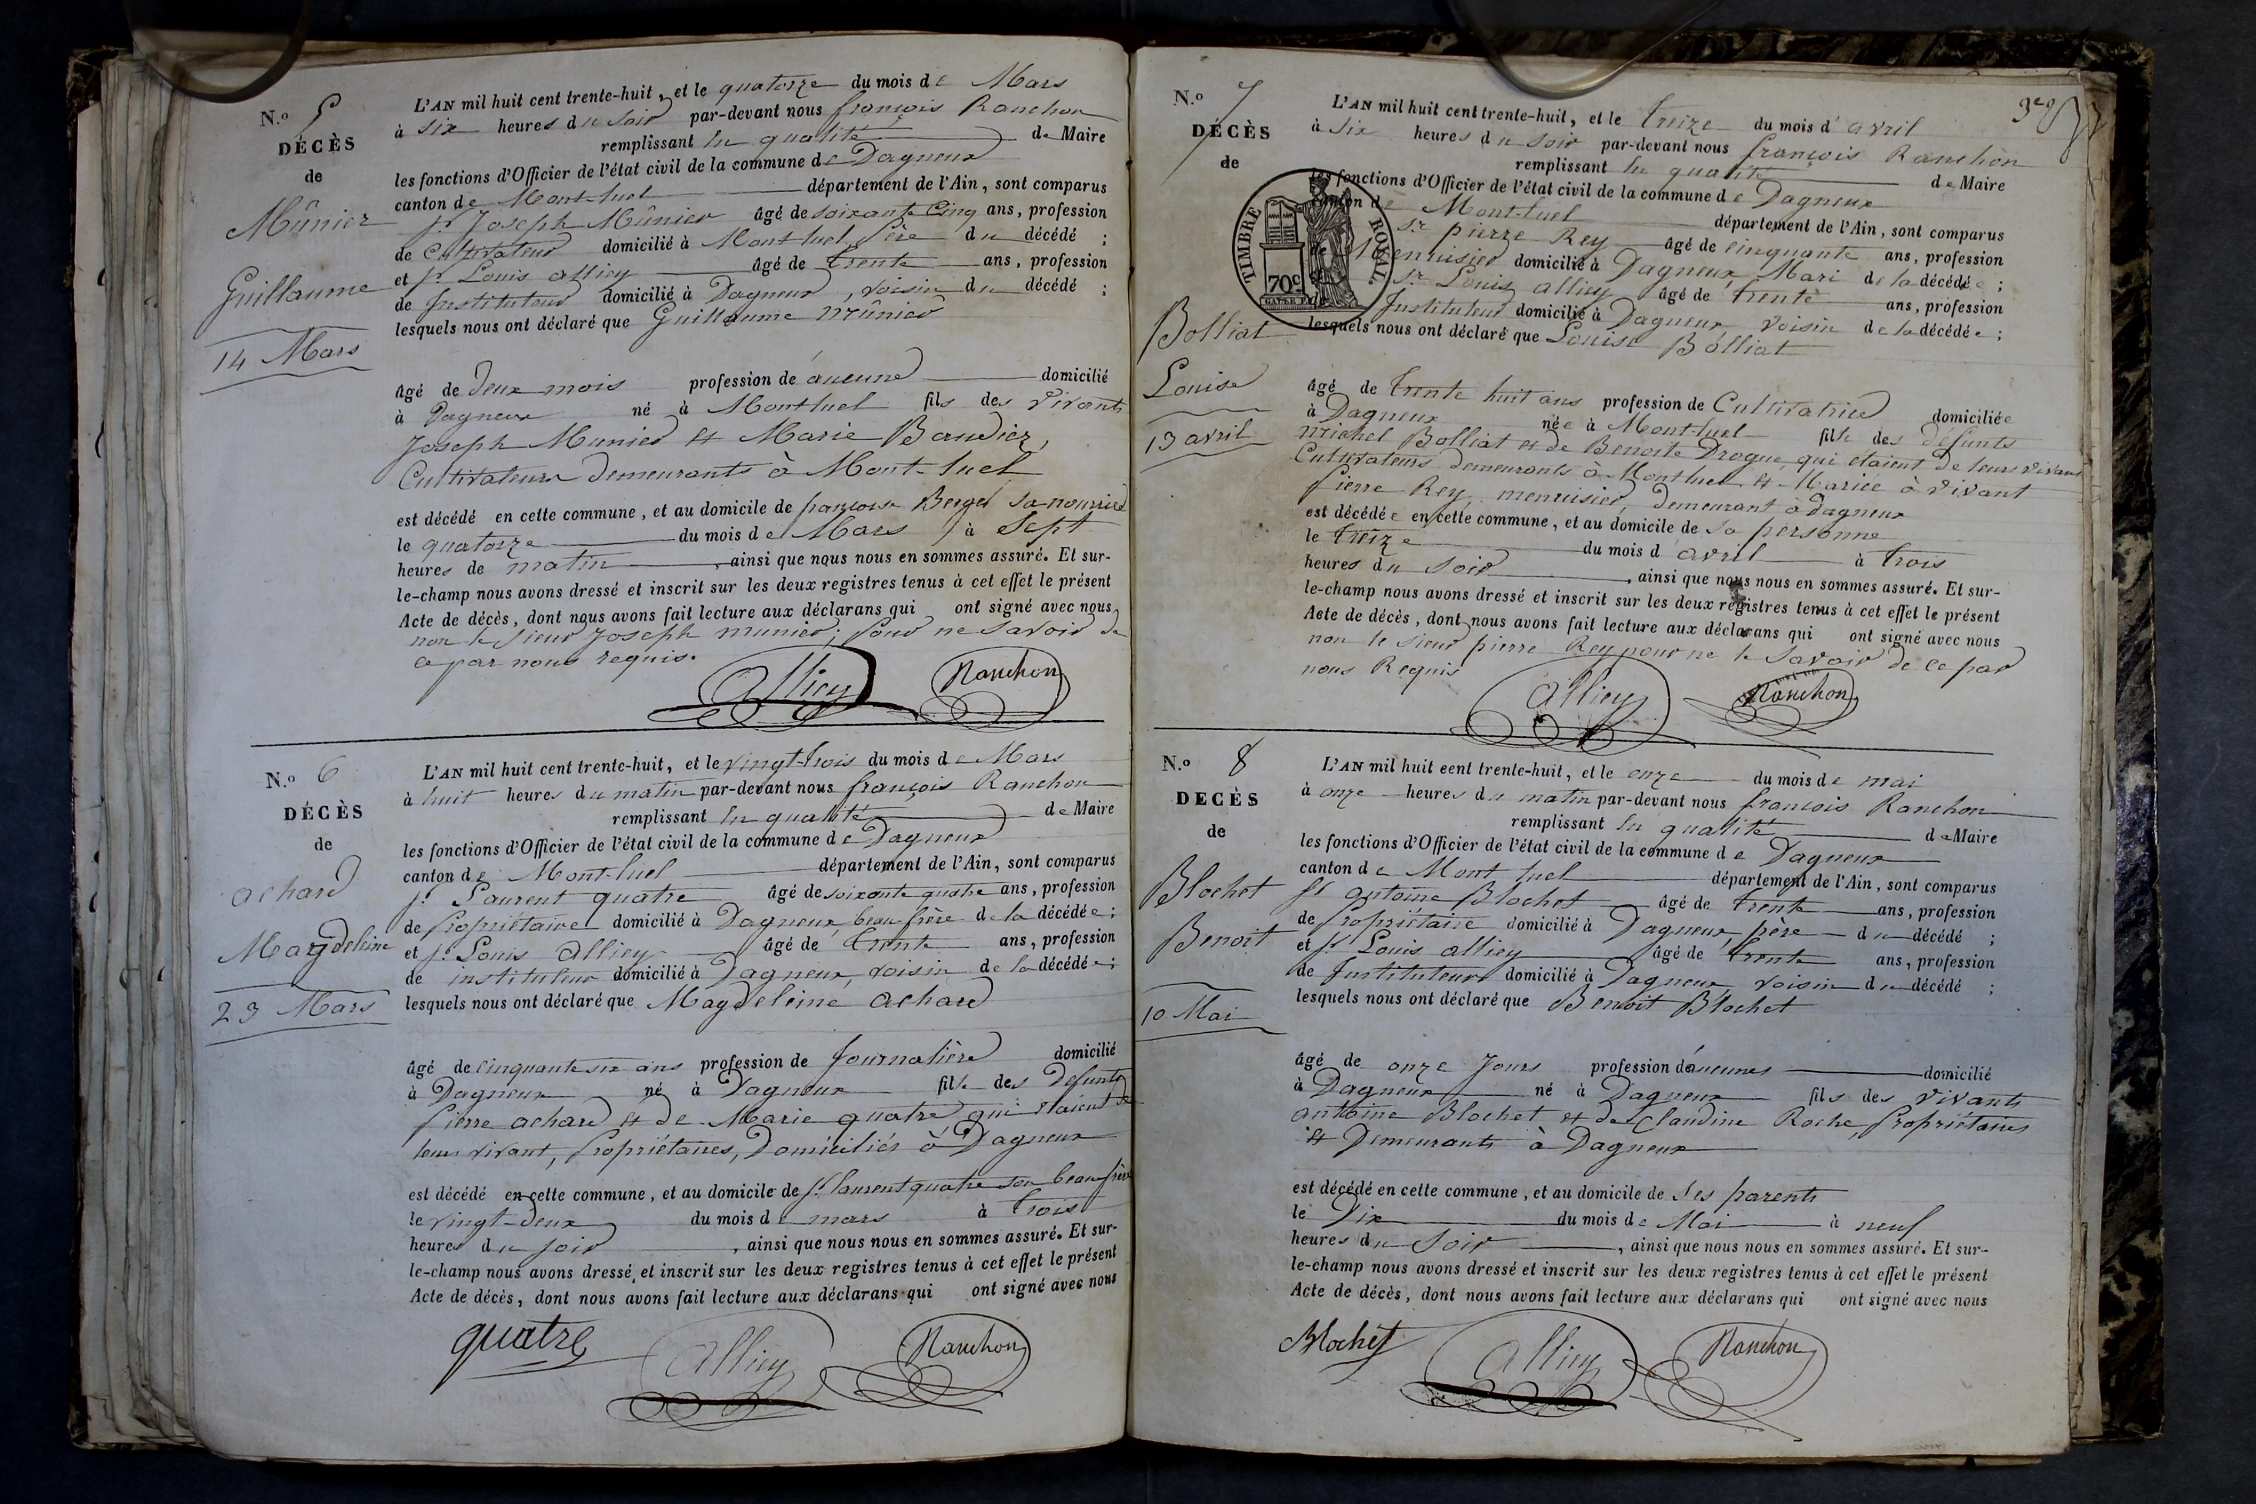 N.º 5
DÉCÈS
de
Mûnier
Guillaume
14 Mars
L'AN mil huit cent trente-huit, et le quatorze du mois de Mars
à six heures du soir par-devant nous françois Ranchon
remplissant en qualité de Maire
les fonctions d'Officier de l'état civil de la commune de Dagneux
canton de Mont-luel département de l'Ain, sont comparus
Sr. Joseph Mûnier âgé de soixante Cinq ans, profession
de Cultivateur domicilié à Montluel, père du décédé ;
et Sr. Louis alliey âgé de trente ans, profession
de Instituteur domicilié à Dagneux, voisin du décédé ;
lesquels nous ont déclaré que Guillaume Mûnier
âgé de Deux mois profession de aucune domicilié
à Dagneux né à Montluel fils des Vivants
Joseph Munier et Marie Baudier,
Cultivateurs demeurants à Mont-luel
est décédé en cette commune, et au domicile de françoise Berger sa nourrice
le quatorze du mois de Mars à Sept
heures de matin, ainsi que nous nous en sommes assuré. Et sur-
le-champ nous avons dressé et inscrit sur les deux registres tenus à cet effet le présent
Acte de décès, dont nous avons fait lecture aux déclarans qui ont signé avec nous
non le sieur Joseph munier, pour ne savoir de
ce par nous requis.
Alliey Ranchon
N.º 6
DÉCÈS
de
achard
Magdeleine
23 Mars
L'AN mil huit cent trente-huit, et le vingt-trois du mois de Mars
à huit heures du matin par-devant nous françois Ranchon
remplissant en qualité de Maire
les fonctions d'Officier de l'état civil de la commune de Dagneux
canton de Mont-luel département de l'Ain, sont comparus
Sr. Laurent quatre âgé de soixante quatre ans, profession
de Propriétaire domicilié à Dagneux, beau frère de la décédée ;
et Sr. Louis Alliey âgé de trente ans, profession
de instituteur domicilié à Dagneux, voisin de la décédée ;
lesquels nous ont déclaré que Magdeleine achard
âgé de cinquante six ans profession de Journalière domicilié
à Dagneux né à Dagneux fille des Defunts
Pierre achard et de Marie quatre qui étaient de
leur vivant, Propriétaires, Domiciliés à Dagneux
est décédé en cette commune, et au domicile de Sr. laurent quatre son beau frère
le vingt-deux du mois de mars à trois
heures du soir, ainsi que nous nous en sommes assuré. Et sur-
le-champ nous avons dressé et inscrit sur les deux registres tenus à cet effet le présent
Acte de décès, dont nous avons fait lecture aux déclarans qui ont signé avec nous
quatre Alliey Ranchon
N.º 7
DÉCÈS
de
Bolliat
Louise
13 avril
TIMBRE ROYAL
70c
L'AN mil huit cent trente-huit, et le treize du mois d'avril
à six heures du soir par-devant nous françois Ranchon
remplissant en qualité de Maire
les fonctions d'Officier de l'état civil de la commune de Dagneux
canton de Mont-luel département de l'Ain, sont comparus
Sr. pierre Rey âgé de cinquante ans, profession
de Menuisier domicilié à Dagneux, Mari de la décédée ;
Sr. Louis alliey âgé de trente ans, profession
Instituteur domicilié à Dagneux voisin de la décédée ;
lesquels nous ont déclaré que Louise Bolliat
âgé de trente huit ans profession de Cultivatrice domiciliée
à Dagneux née à Mont-luel fille des défunts
Michel Bolliat et de Benoite Drogue, qui etaient de leurs vivant
Cultivateurs demeurants à Montluel et Mariée à vivant
Pierre Rey menuisier, demeurant à Dagneux
est décédée en cette commune, et au domicile de sa personne
le treize du mois d'avril à trois
heures du soir, ainsi que nous nous en sommes assuré. Et sur-
le-champ nous avons dressé et inscrit sur les deux registres tenus à cet effet le présent
Acte de décès, dont nous avons fait lecture aux déclarans qui ont signé avec nous
non le sieur pierre Rey pour ne le savoir de ce par
nous Requis
Alliey Ranchon
N.º 8
DÉCÈS
de
Blochet
Benoit
10 Mai
L'AN mil huit cent trente-huit, et le onze du mois de mai
à onze heures du matin par-devant nous françois Ranchon
remplissant en qualité de Maire
les fonctions d'Officier de l'état civil de la commune de Dagneux
canton de Mont luel département de l'Ain, sont comparus
Sr antoine Blochet âgé de trente ans, profession
de Propriétaire domicilié à Dagneux, père du décédé ;
et Sr. Louis alliey âgé de trente ans, profession
de Instituteur domicilié à Dagneux, voisin du décédé ;
lesquels nous ont déclaré que Benoit Blochet
âgé de onze Jours profession d'aucunes domicilié
à Dagneux né à Dagneux fils des vivants
antoine Blochet et de Claudine Roche, Propriétaires
et Demeurants à Dagneux
est décédé en cette commune, et au domicile de Ses parents
le Dix du mois de Mai à neuf
heures du Soir, ainsi que nous nous en sommes assuré. Et sur-
le-champ nous avons dressé et inscrit sur les deux registres tenus à cet effet le présent
Acte de décès, dont nous avons fait lecture aux déclarans qui ont signé avec nous
Blochet Alliey Ranchon